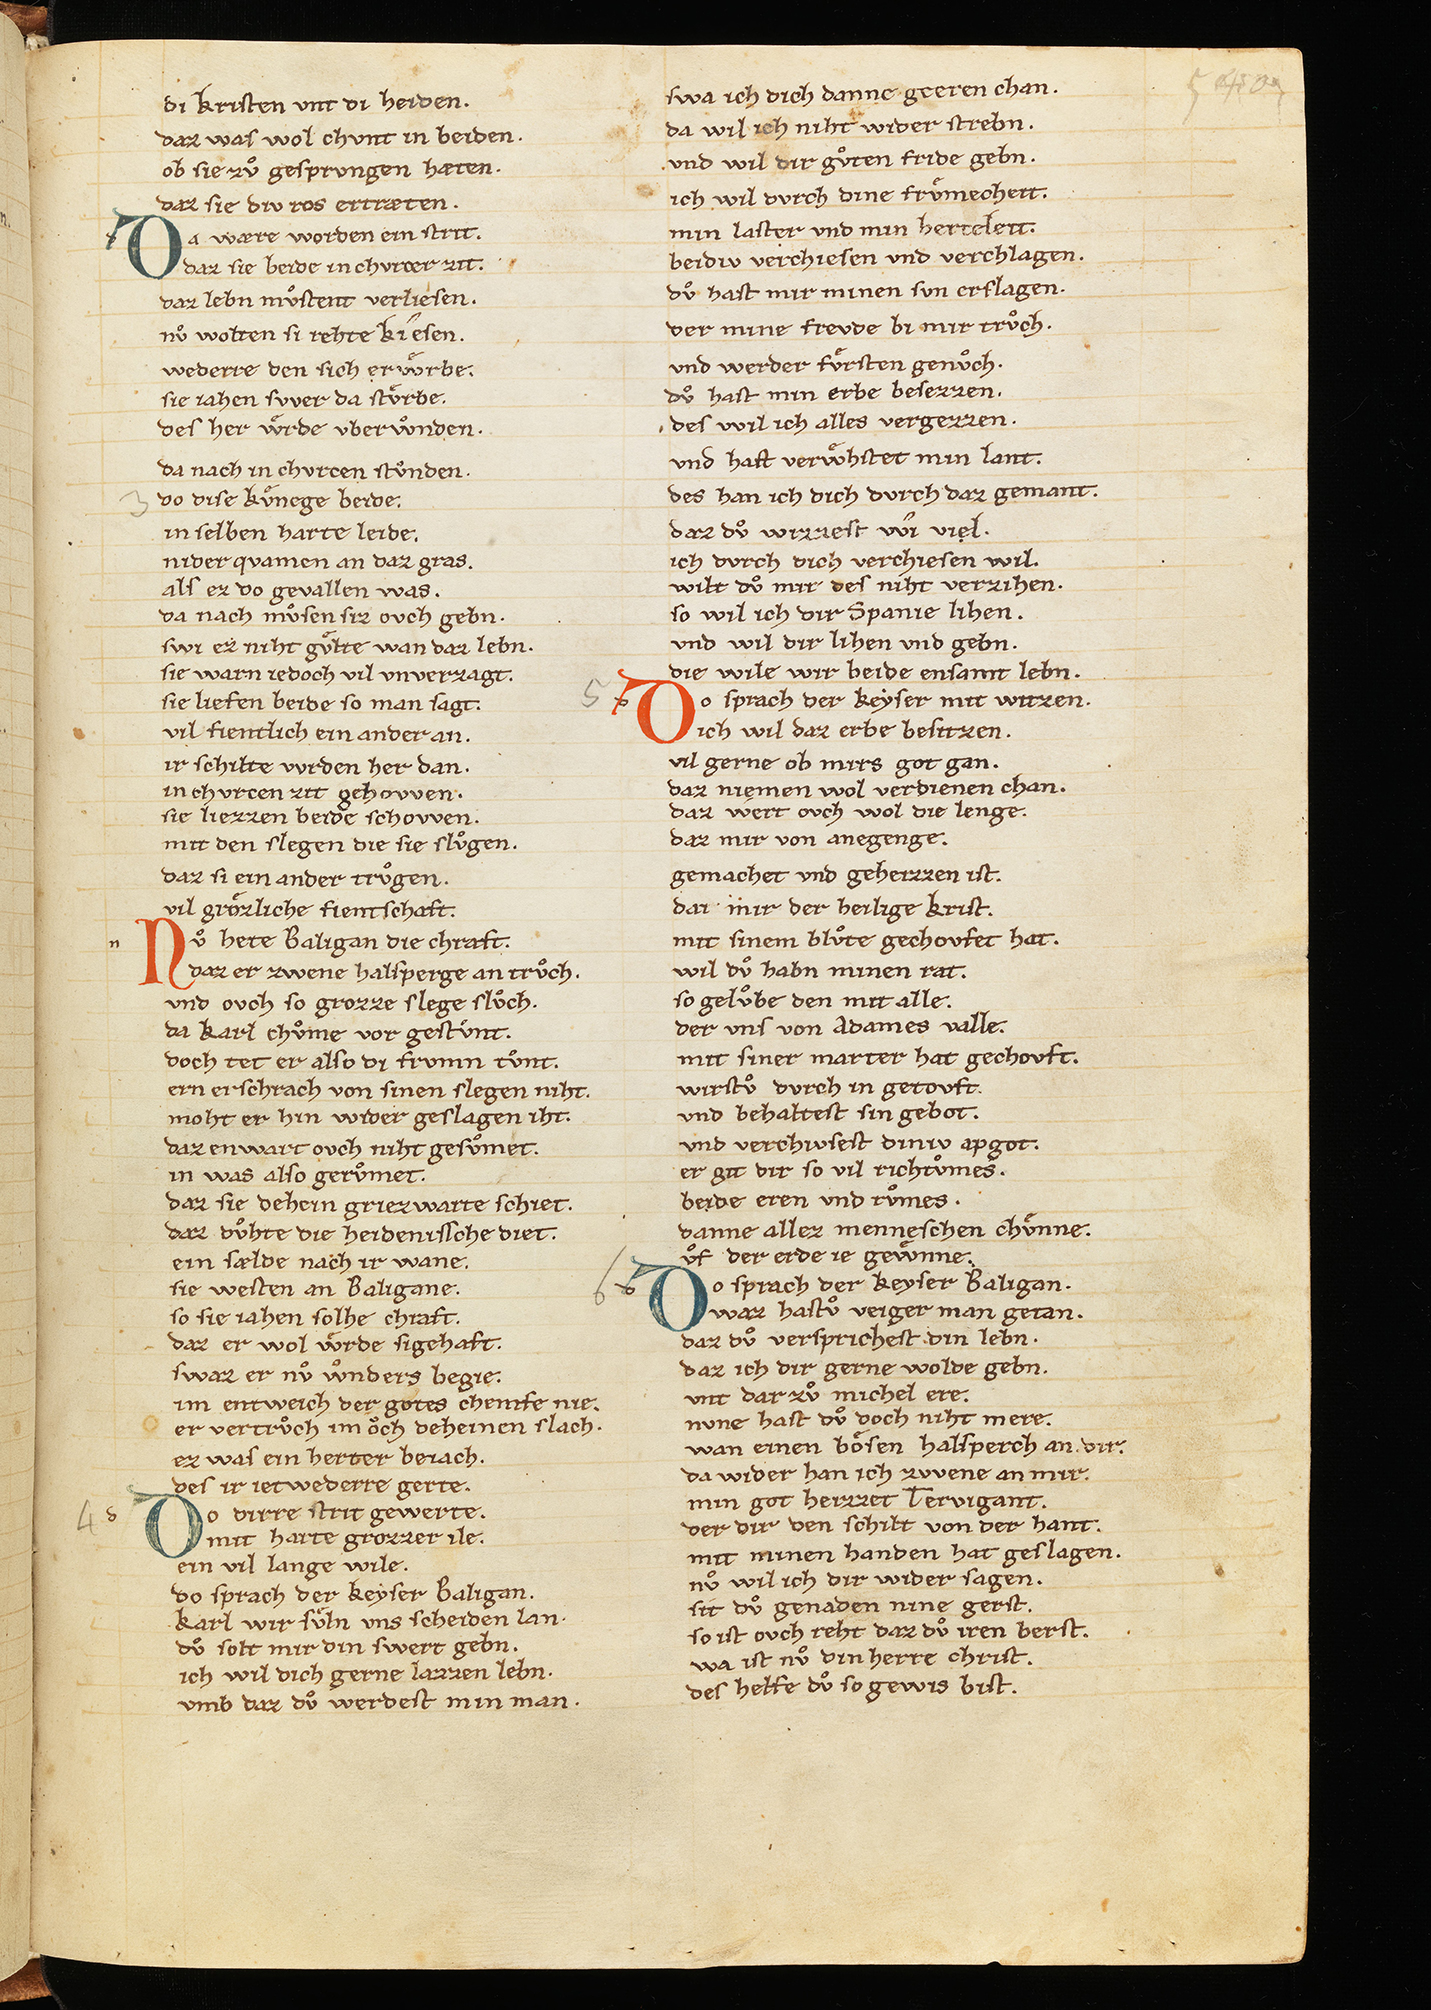 di kristen vnt di heiden.
daz was wol chvnt in beiden.
ob sie zvͦ gesprvngen hæten.
daz sie div ros ertræten.
Da wære worden ein strit.
daz sie beide in chvrcer zit.
daz lebn mvͦstent verliesen.
nvͦ wolten si rehte kiesen.
wederre den sich erwͤrbe.
sie iahen swer da stvͤrbe.
des her wͤrde vberwͦnden.
da nach in chvrcen stvͦnden.
3 do dise kvͤnege beide.
in selben harte leide.
nider qvamen an daz gras.
als ez do gevallen was.
da nach mvͦsen siz ovch gebn.
swi ez niht gvͤlte wan daz lebn.
sie warn iedoch vil vnverzagt.
sie liefen beide so man sagt.
vil fientlich ein ander an.
ir schilte vvrden her dan.
in chvrcen zit gehovven.
sie liezzen beide schovven.
mit den slegen die sie slvͦgen.
daz si ein ander trvͦgen.
vil grͦzliche fientschaft.
n Nvͦ hete Baligan die chraft.
daz er zwene halsperge an trvͦch.
vnd ovch so grozze slege slvͦch.
da karl chvͦme vor gestvͦnt.
doch tet er also di frvmn tvͦnt.
ern erschrach von sinen slegen niht.
moht er hin wider geslagen iht.
daz enwart ovch niht gesvͦmet.
in was also gervͦmet.
daz sie dehein griezwarte schiet.
daz dvͦhte die heidenissche diet.
ein sælde nach ir wane.
sie westen an Baligane.
so sie iahen solhe chraft.
daz er wol wͤrde sigehaft.
swaz er nvͦ wͦnders begie.
im entweich der gotes chemfe nie.
er vertrvͦch im ͦch deheinen slach.
ez was ein herter beiach.
des ir ietwederre gerte.
4 d Do dirre strit gewerte.
mit harte grozzer ile.
ein vil lange wile.
do sprach der keyser Baligan.
karl wir svͤln vns scheiden lan.
dvͦ solt mir din swert gebn.
ich wil dich gerne lazzen lebn.
vmb daz dvͦ werdest min man.
swa ich dich danne geeren chan.
da wil ich niht wider strebn.
vnd wil dir gvͦten fride gebn.
ich wil dvrch dine frvͤmecheit.
min laster vnd min hertzeleit.
beidiv verchiesen vnd verchlagen.
dvͦ hast mir minen svn erslagen.
der mine frevde bi mir trvͦch.
vnd werder fvͤrsten genvͦch.
dvͦ hast min erbe besezzen.
des wil ich alles vergezzen.
vnd hast verwͤhstet min lant.
des han ich dich dvrch daz gemant.
daz dvͦ wizzest wi viel.
ich dvrch dich verchiesen wil.
wilt dvͦ mir des niht verzihen.
so wil ich dir Spanie lihen.
vnd wil dir lihen vnd gebn.
die wile wir beide ensamt lebn.
5 Do sprach der keyser mit witzen.
ich wil daz erbe besitzen.
vil gerne ob mirs got gan.
daz niemen wol verdienen chan.
daz wert ovch wol die lenge.
daz mir von anegenge.
gemachet vnd geheizzen ist.
daz mir der heilige krist.
mit sinem blvͦte gechovfet hat.
wil dvͦ habn minen rat.
so gelvͦbe den mit alle.
der vns von Adames valle.
mit siner marter hat gechovft.
wirstvͦ dvrch in getovft.
vnd behaltest sin gebot.
vnd verchivsest diniv apgot.
er git dir so vil richtvͦmes.
beide eren vnd rvͦmes.
danne allez menneschen chvͤnne.
vͦf der erde ie gewͤnne.
6 d Do sprach der keyser Baligan.
waz hastvͦ veiger man getan.
daz dvͦ versprichest din lebn.
daz ich dir gerne wolde gebn.
vnt dar zvͦ michel ere.
nvne hast dvͦ doch niht mere.
wan einen bͦsen halsperch an dir.
da wider han ich zvvene an mir.
min got heizzet Tervigant.
der dir den schilt von der hant.
mit minen handen hat geslagen.
nvͦ wil ich dir wider sagen.
sit dvͦ genaden nine gerst.
so ist ovch reht daz dvͦ iren berst.
wa ist nvͦ din herre christ.
des helfe dvͦ so gewis bist.